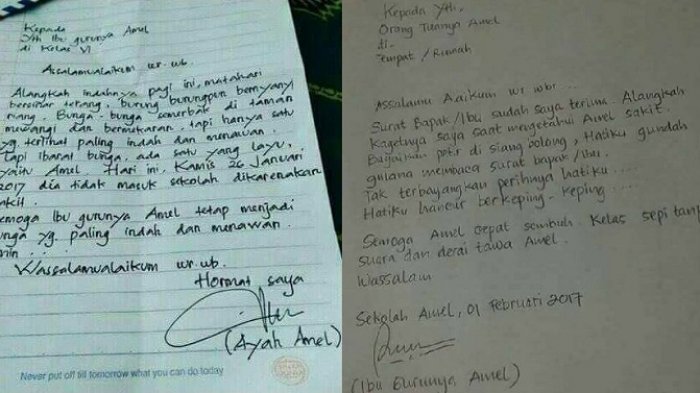 Kepada
Yth Ibu gurunya Amel
di Kelas VI
Assalamualaikum wr. wb.
Alangkah indahnya pagi ini, matahari
bersinar terang, burung burungpun bernyanyi
riang. Bunga-bunga semerbak di taman
mewangi dan bermekaran. tapi hanya satu
yg terlihat paling indah dan menawan.
Tapi ibarat bunga, ada satu yang layu,
yaitu Amel. Hari ini, Kamis 26 Januari
2017 dia tidak masuk sekolah dikarenakan
akit.
emoga Ibu gurunya Amel tetap menjadi
unga yg. paling indah dan menawan.
min ...
Wassalamualaikum wr. wb.
Hormat saya
(Ayah Amel)
Never put off till tomorrow what you can do today
Kepada Yth,
Orang Tuanya Amel
di-
Tempat / Rumah
Assalamu Alaikum wr wbr...
Surat Bapak/Ibu sudah saya terima. Alangkah
Kagetnya saya saat mengetahui Amel sakit.
Bagaikan petir di siang bolong, Hatiku gundah
gulana membaca surat bapak/Ibu.
Tak terbayangkan perihnya hatiku...
Hatiku hancur berkeping-keping....
Semoga Amel cepat sembuh. Kelas sepi tanp
suara dan derai tawa Amel.
Wassalam
Sekolah Amel, 01 Februari 2017
(Ibu Gurunya Amel)